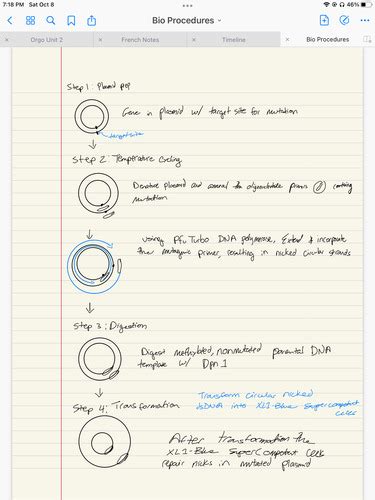 7:18 PM Sat Oct 8
46%
Bio Procedures
Orgo Unit 2
French Notes
Timeline
Bio Procedures
Step 1: Plasmid prep
Gene in plasmid w/ target site for mutation
target site
Step 2: Temperature Cycling
Denature plasmid and anneal the oligonucleotide primers containing
mutation
Using Pfu Turbo DNA polymerase, Extend & incorporate
the mutagenic primers, resulting in nicked circular strands
Step 3: Digestion
Digest methylated, nonmutated parental DNA
template w/ Dpn 1
Step 4: Transformation
Transform circular nicked
dsDNA into XL1-Blue Supercompetent
cells
After transformation the
XL1-Blue Supercompetent Cells
repair nicks in mutated plasmid